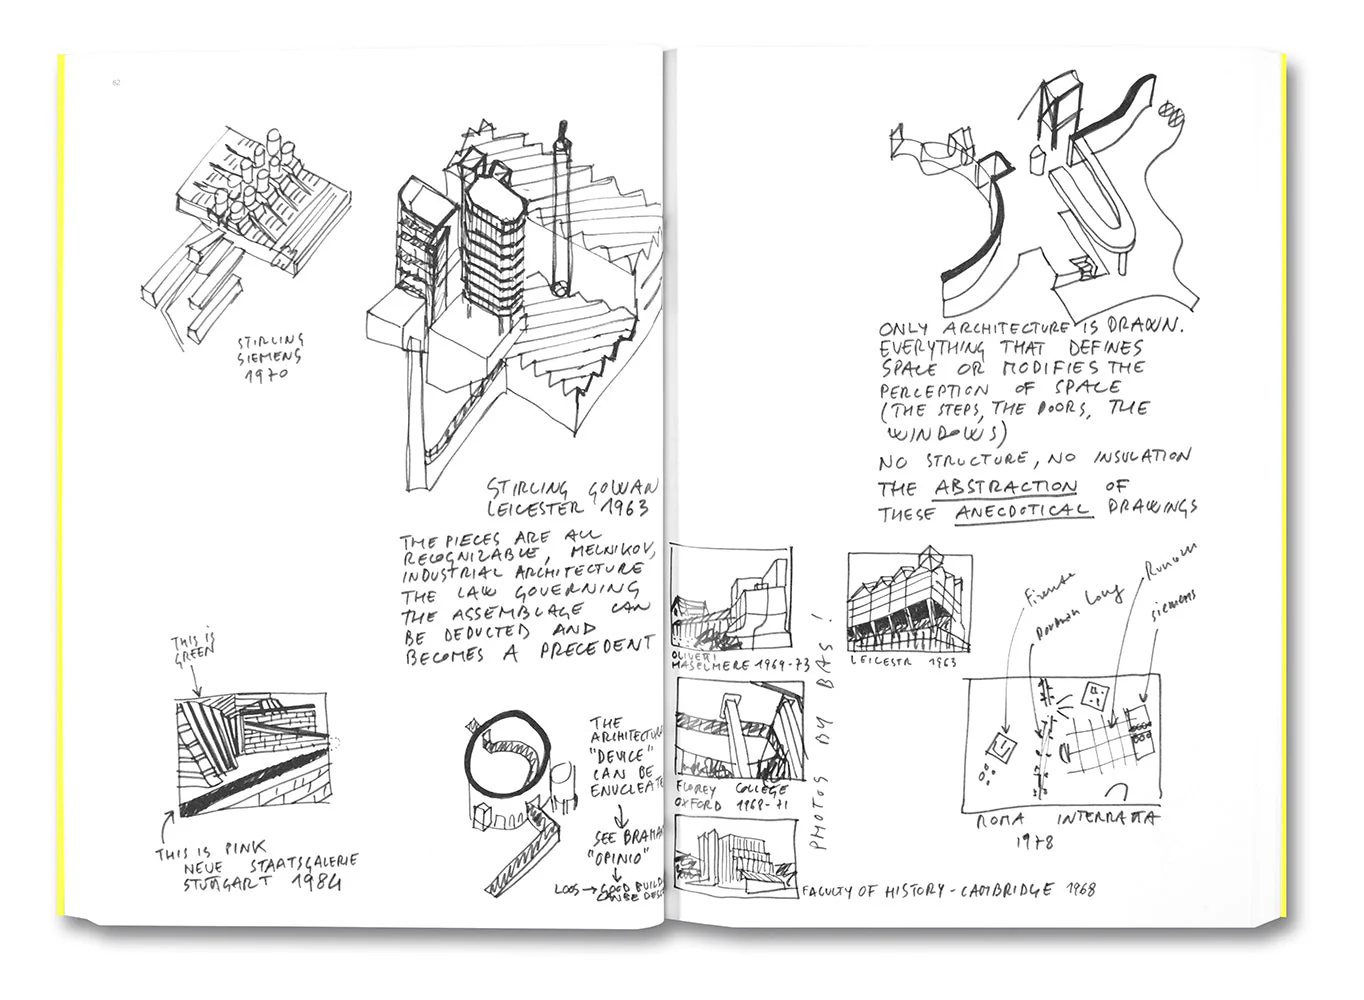 62
STIRLING
SIEMENS
1970
STIRLING GOWAN
LEICESTER 1963
THE PIECES ARE ALL
RECOGNIZABLE, MELNIKOV,
INDUSTRIAL ARCHITECTURE
THE LAW GOVERNING
THE ASSEMBLAGE CAN
BE DEDUCTED AND
BECOMES A PRECEDENT
THIS IS
GREEN
THIS IS PINK
NEUE STAATSGALERIE
STUTTGART 1984
THE
ARCHITECTUR
"DEVICE"
CAN BE
ENUCLEATE
SEE BRAMAN
"OPINIO"
LOOS → GOOD BUILD
CAN BE DESC
ONLY ARCHITECTURE IS DRAWN.
EVERYTHING THAT DEFINES
SPACE OR MODIFIES THE
PERCEPTION OF SPACE
(THE STEPS, THE DOORS, THE
WINDOWS)
NO STRUCTURE, NO INSULATION
THE ABSTRACTION OF
THESE ANECDOTICAL DRAWINGS
OLIVETTI
HASELMERE 1969-73
LEICESTR 1963
FLOREY COLLEGE
OXFORD 1968-71
PHOTOS BY BAS!
FACULTY OF HISTORY - CAMBRIDGE 1968
Firenze
Runcorn
siemens
ROMA INTERROTTA
1978